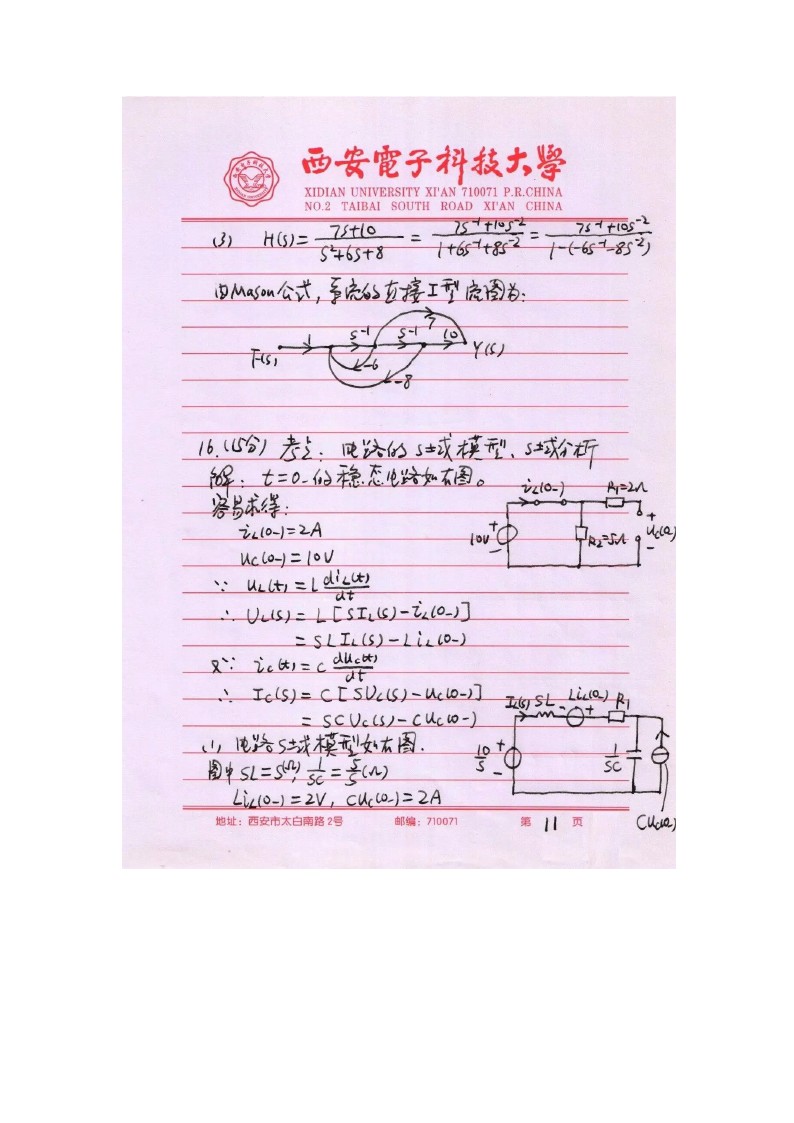 西安電子科技大學
XIDIAN UNIVERSITY XI'AN 710071 P.R.CHINA
NO.2 TAIBAI SOUTH ROAD XI'AN CHINA
(3) H(s) = \frac{7s+10}{s²+6s+8} = \frac{7s⁻¹+10s⁻²}{1+6s⁻¹+8s⁻²} = \frac{7s⁻¹+10s⁻²}{1-(-6s⁻¹-8s⁻²)}
由Mason公式,系统的直接I型流图为:
7
F(s) 1 s⁻¹ s⁻¹ 10 Y(s)
-6
-8
16.(15分) 考点: 电路的s域模型、s域分析
解: t=0-的稳态电路如右图。
容易求得:
i_L(0-)=2A
u_C(0-)=10V
i_L(0-) R₁=2Ω
10V + - R₂=5Ω + u_C(0-) -
∵ u_L(t) = L \frac{di_L(t)}{dt}
∴ U_L(s) = L[sI_L(s)-i_L(0-)]
= sLI_L(s)-Li_L(0-)
又∵ i_C(t) = C \frac{du_C(t)}{dt}
∴ I_C(s) = C[sU_C(s)-u_C(0-)]
= sCU_C(s)-Cu_C(0-)
(1) 电路s域模型如右图.
图中sL=s(Ω), \frac{1}{sC}=\frac{5}{s}(Ω)
Li_L(0-)=2V, Cu_C(0-)=2A
I_L(s) sL - Li_L(0-) + R₁
\frac{10}{s} + - \frac{1}{sC}
Cu_C(0-)
地址: 西安市太白南路2号 邮编: 710071 第 11 页